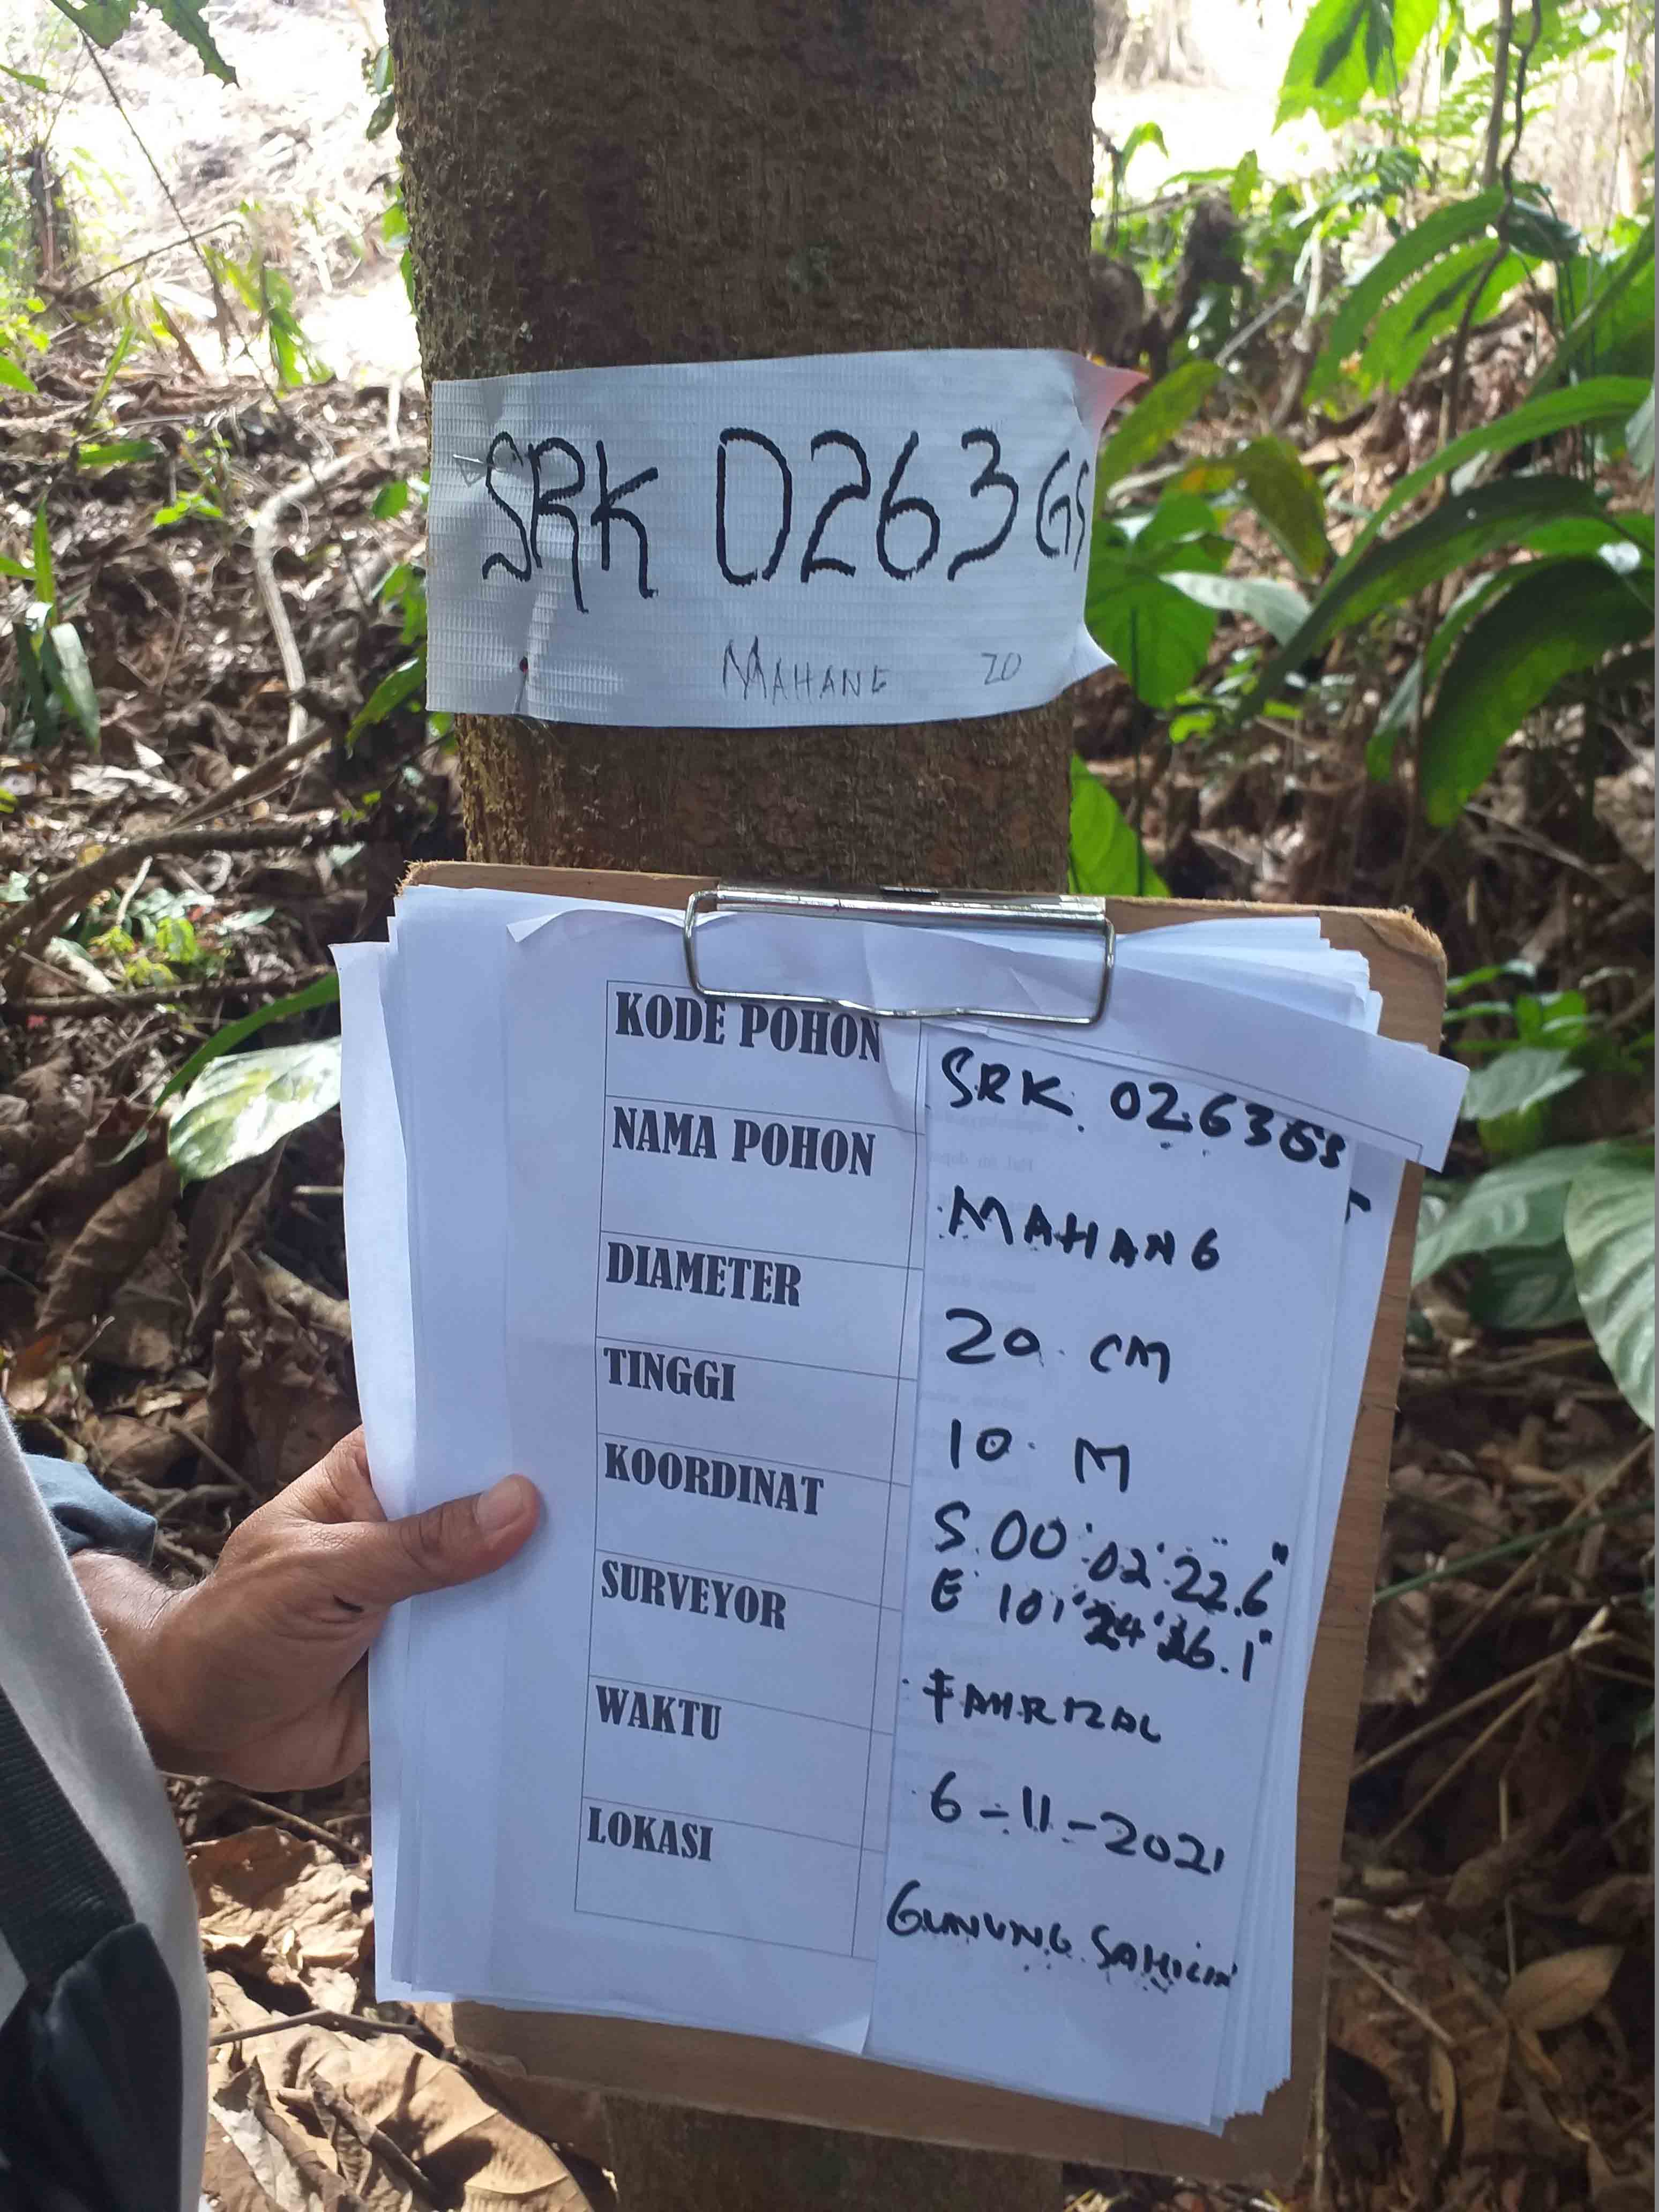 SRK 0263 GS
MAHANG 20
KODE POHON SRK 0263 GS
NAMA POHON MAHANG
DIAMETER 20 CM
TINGGI 10 M
KOORDINAT S 00° 02' 22.6"
E 101° 24' 26.1"
SURVEYOR FAHRIZAL
WAKTU 6-11-2021
LOKASI GUNUNG SAHILAN